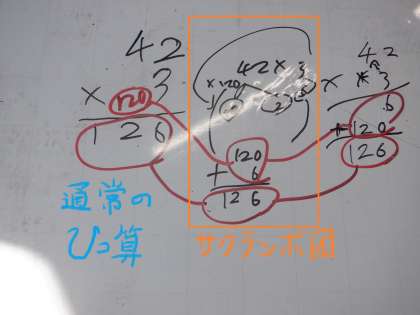 42
× 3
120
126
通常の
ひっ算
42×3
120
+ 6
126
サクランボ図
42
× 3
6
+120
126